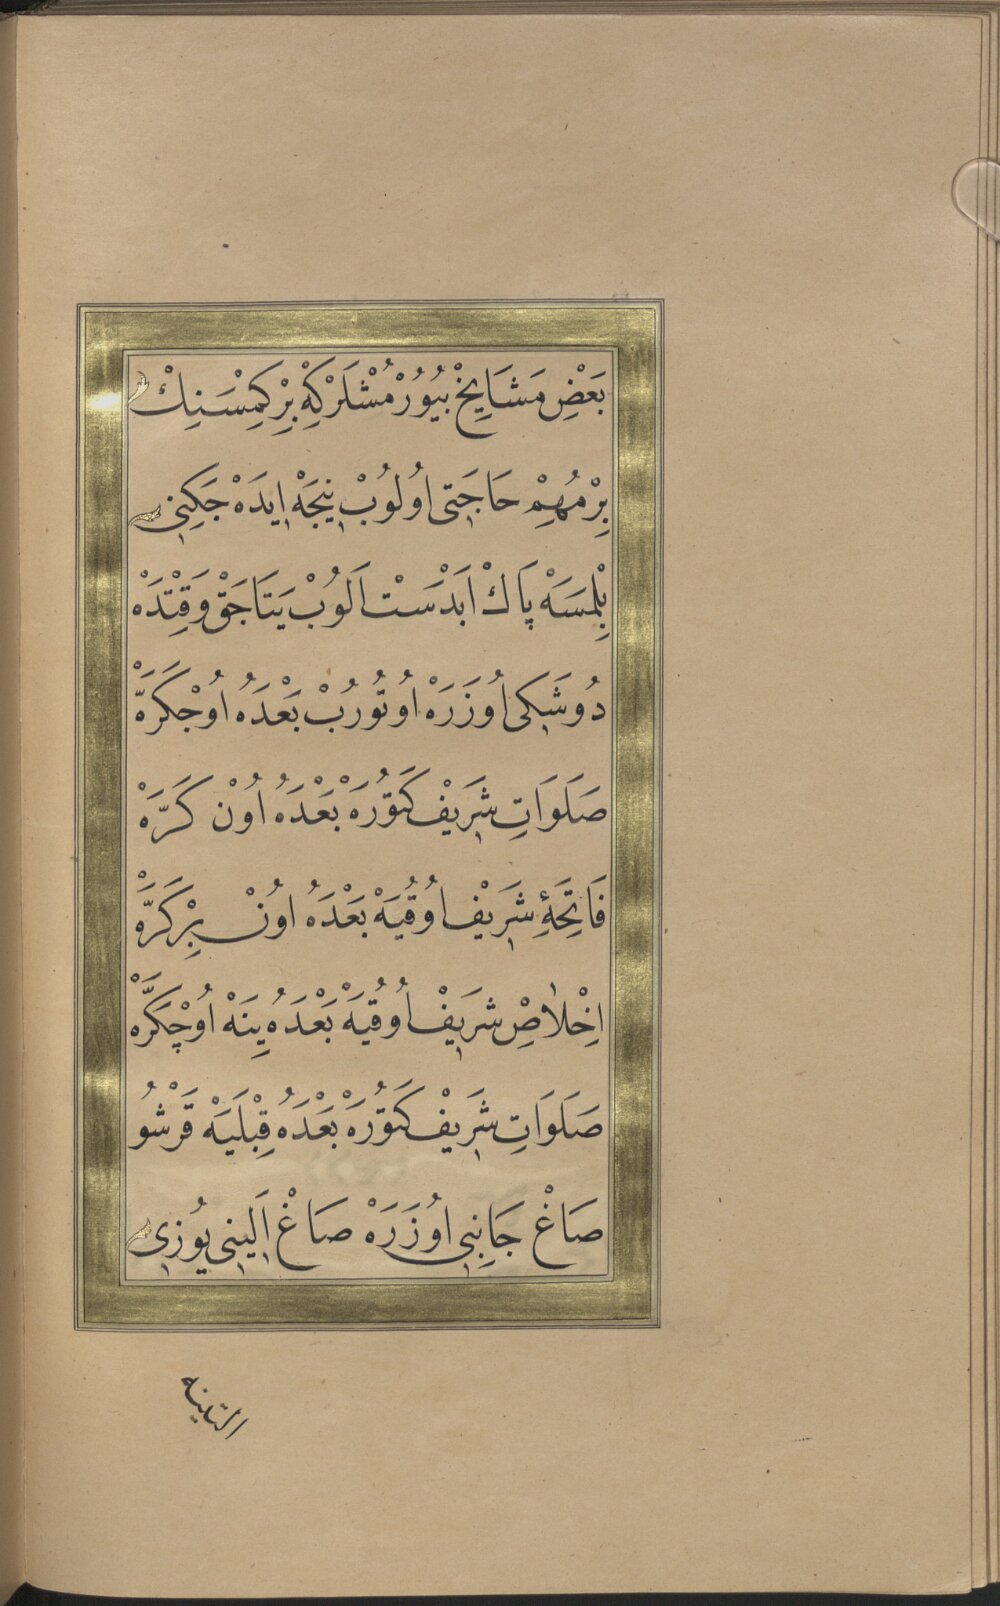 بَعْضِ مَشَايِخْ بُيُوُرْمُشْلَرْكِهْ بِرْ كِمْسَنِكْ
بِرْ مُهِمْ حَاجَتِى اُولُوبْ نِيجَهْ اِيدَهْ جَكِنِى
بِلْمَسَهْ پَاكْ اَبْدَسْت اَلُوبْ يَتَاجَقْ وَقِتْدَهْ
دُوشَكِى اُوزَرَهْ اُوتُورُبْ بَعْدَهُ اُوجْ كَرَّهْ
صَلَوَاتِ شَرِيفْ كَتُورَهْ بَعْدَهُ اُونْ كَرَّهْ
فَاتِحَۀِ شَرِيفْ اُوقُيَهْ بَعْدَهُ اُونْ بِرْ كَرَّهْ
اِخْلَاصِ شَرِيفْ اُوقُيَهْ بَعْدَهُ يِنَهْ اُوچْ كَرَّهْ
صَلَوَاتِ شَرِيفْ كَتُورَهْ بَعْدَهُ قِبْلَيَهْ قَرْشُو
صَاغْ جَانِبِى اُوزَرَهْ صَاغْ اَلِينِى يُوزِى
التينه